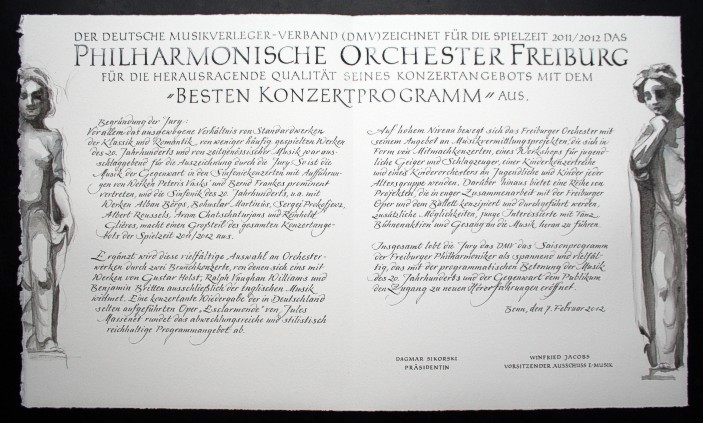 DER DEUTSCHE MUSIKVERLEGER-VERBAND (DMV) ZEICHNET FÜR DIE SPIELZEIT 2011/2012 DAS
PHILHARMONISCHE ORCHESTER FREIBURG
FÜR DIE HERAUSRAGENDE QUALITÄT SEINES KONZERTANGEBOTS MIT DEM
"BESTEN KONZERTPROGRAMM" AUS.
Begründung der Jury:
Vor allem das ausgewogene Verhältnis von Standardwerken
der Klassik und Romantik, von weniger häufig gespielten Werken
des 20. Jahrhunderts und von zeitgenössischer Musik war aus-
schlaggebend für die Auszeichnung durch die Jury. So ist die
Musik der Gegenwart in den Sinfoniekonzerten mit Aufführun-
gen von Werken Peteris Vasks' und Bernd Frankes prominent
vertreten, und die Sinfonik des 20. Jahrhunderts, u.a. mit
Werken Alban Bergs, Bohuslav Martinůs, Sergej Prokofjews,
Albert Roussels, Aram Chatschaturjans und Reinhold
Glières, macht einen Großteil des gesamten Konzertange-
bots der Spielzeit 2011/2012 aus.
Ergänzt wird diese vielfältige Auswahl an Orchester-
werken durch zwei Brunchkonzerte, von denen sich eins mit
Werken von Gustav Holst, Ralph Vaughan Williams und
Benjamin Britten ausschließlich der englischen Musik
widmet. Eine konzertante Wiedergabe der in Deutschland
selten aufgeführten Oper „Esclarmonde" von Jules
Massenet rundet das abwechslungsreiche und stilistisch
reichhaltige Programmangebot ab.
Auf hohem Niveau bewegt sich das Freiburger Orchester mit
seinem Angebot an Musikvermittlungsprojekten, die sich in
Form von Mitmachkonzerten, eines Workshops für jugend-
liche Geiger und Schlagzeuger, einer Kinderkonzertreihe
und eines Kinderorchesters an Jugendliche und Kinder jeder
Altersgruppe wenden. Darüber hinaus bietet eine Reihe von
Projekten, die in enger Zusammenarbeit mit der Freiburger
Oper und dem Ballett konzipiert und durchgeführt werden,
zusätzliche Möglichkeiten, junge Interessierte mit Tanz,
Bühnenaktion und Gesang an die Musik heran zu führen.
Insgesamt lobt die Jury das DMV das Saisonprogramm
der Freiburger Philharmoniker als spannend und vielfäl-
tig, das mit der programmatischen Betonung der Musik
des 20. Jahrhunderts und der Gegenwart dem Publikum
den Zugang zu neuen Hörerfahrungen eröffnet.
Bonn, den 7. Februar 2012
DAGMAR SIKORSKI
PRÄSIDENTIN
WINFRIED JACOBS
VORSITZENDER AUSSCHUSS E-MUSIK